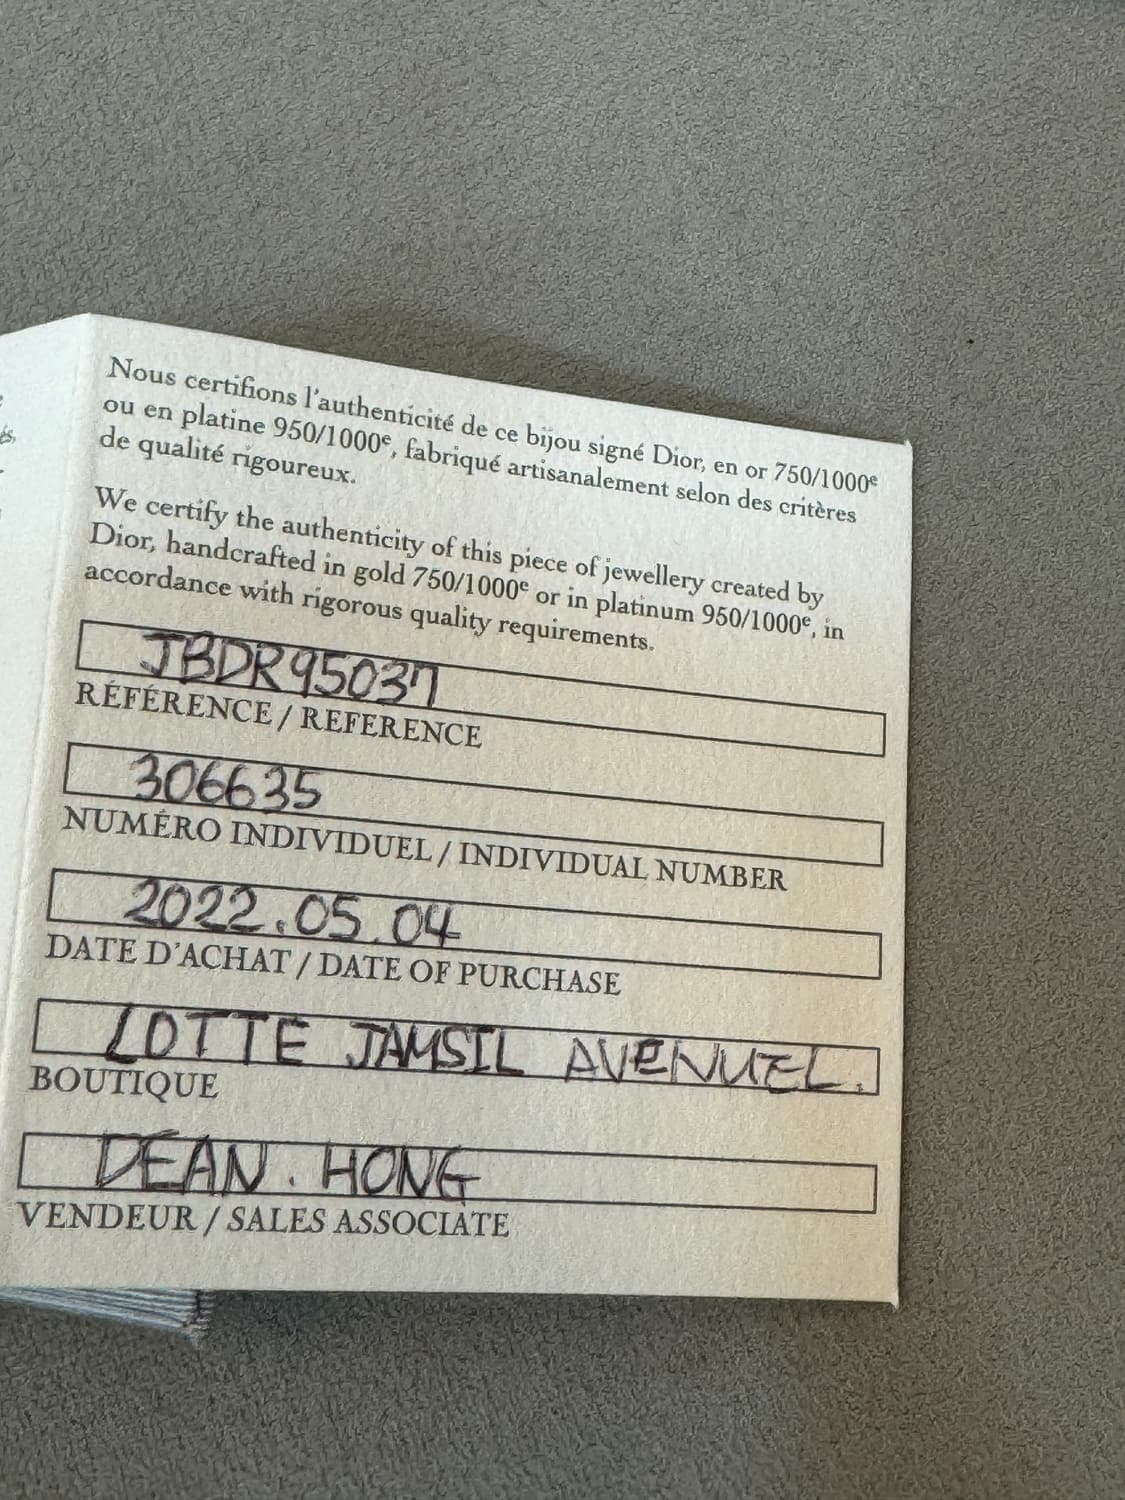 Nous certifions l'authenticité de ce bijou signé Dior, en or 750/1000e
ou en platine 950/1000e, fabriqué artisanalement selon des critères
de qualité rigoureux.
We certify the authenticity of this piece of jewellery created by
Dior, handcrafted in gold 750/1000e or in platinum 950/1000e, in
accordance with rigorous quality requirements.
JBDR95037
RÉFÉRENCE / REFERENCE
306635
NUMÉRO INDIVIDUEL / INDIVIDUAL NUMBER
2022.05.04
DATE D'ACHAT / DATE OF PURCHASE
LOTTE JAMSIL AVENUEL.
BOUTIQUE
DEAN. HONG
VENDEUR / SALES ASSOCIATE